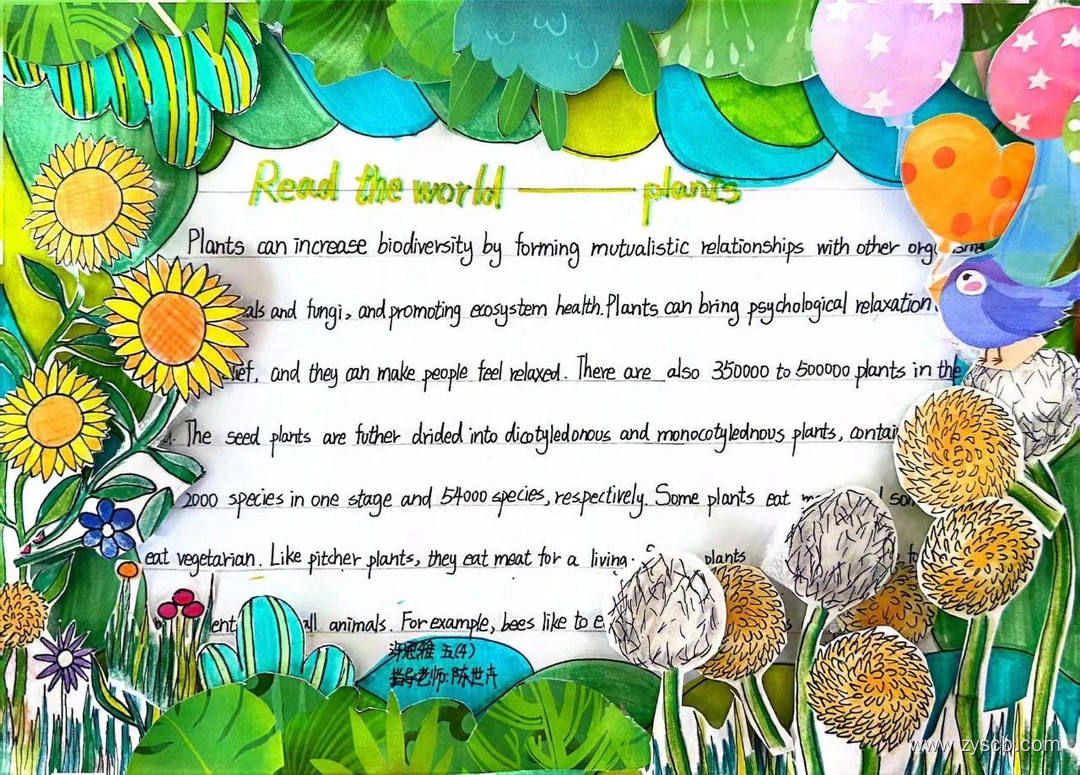 Read the world — plants
Plants can increase biodiversity by forming mutualistic relationships with other
and fungi, and promoting ecosystem health. Plants can bring psychological relaxation
and they can make people feel relaxed. There are also 350000 to 500000 plants in the
The seed plants are futher drided into dicotyledonous and monocotylednous plants,
2000 species in one stage and 54000 species, respectively. Some plants eat
eat vegetarian. Like pitcher plants, they eat meat for a living. plants
animals. For example, bees like to
许恩雅 五(4)
指导老师:陈世卉
www.zyscb.com